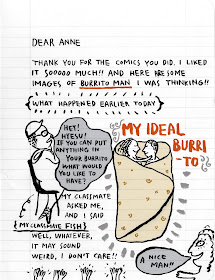 DEAR ANNE
THANK YOU FOR THE COMICS YOU DID. I LIKED
IT SOOOOO MUCH!! AND HERE ARE SOME
IMAGES OF BURRITO MAN I WAS THINKING!!
{WHAT HAPPENED EARLIER TODAY}
HEY!
HTESU!
IF YOU CAN PUT
ANYTHING IN
YOUR BURRITO
WHAT WOULD
YOU LIKE TO
HAVE?
MY CLASSMATE
ASKED ME,
AND I SAID
{MY CLASSMATE FISH}
WELL, WHATEVER,
IT MAY SOUND
WEIRD, I DON'T CARE!!
MY IDEAL
BURRI
-TO
A NICE
MAN!!